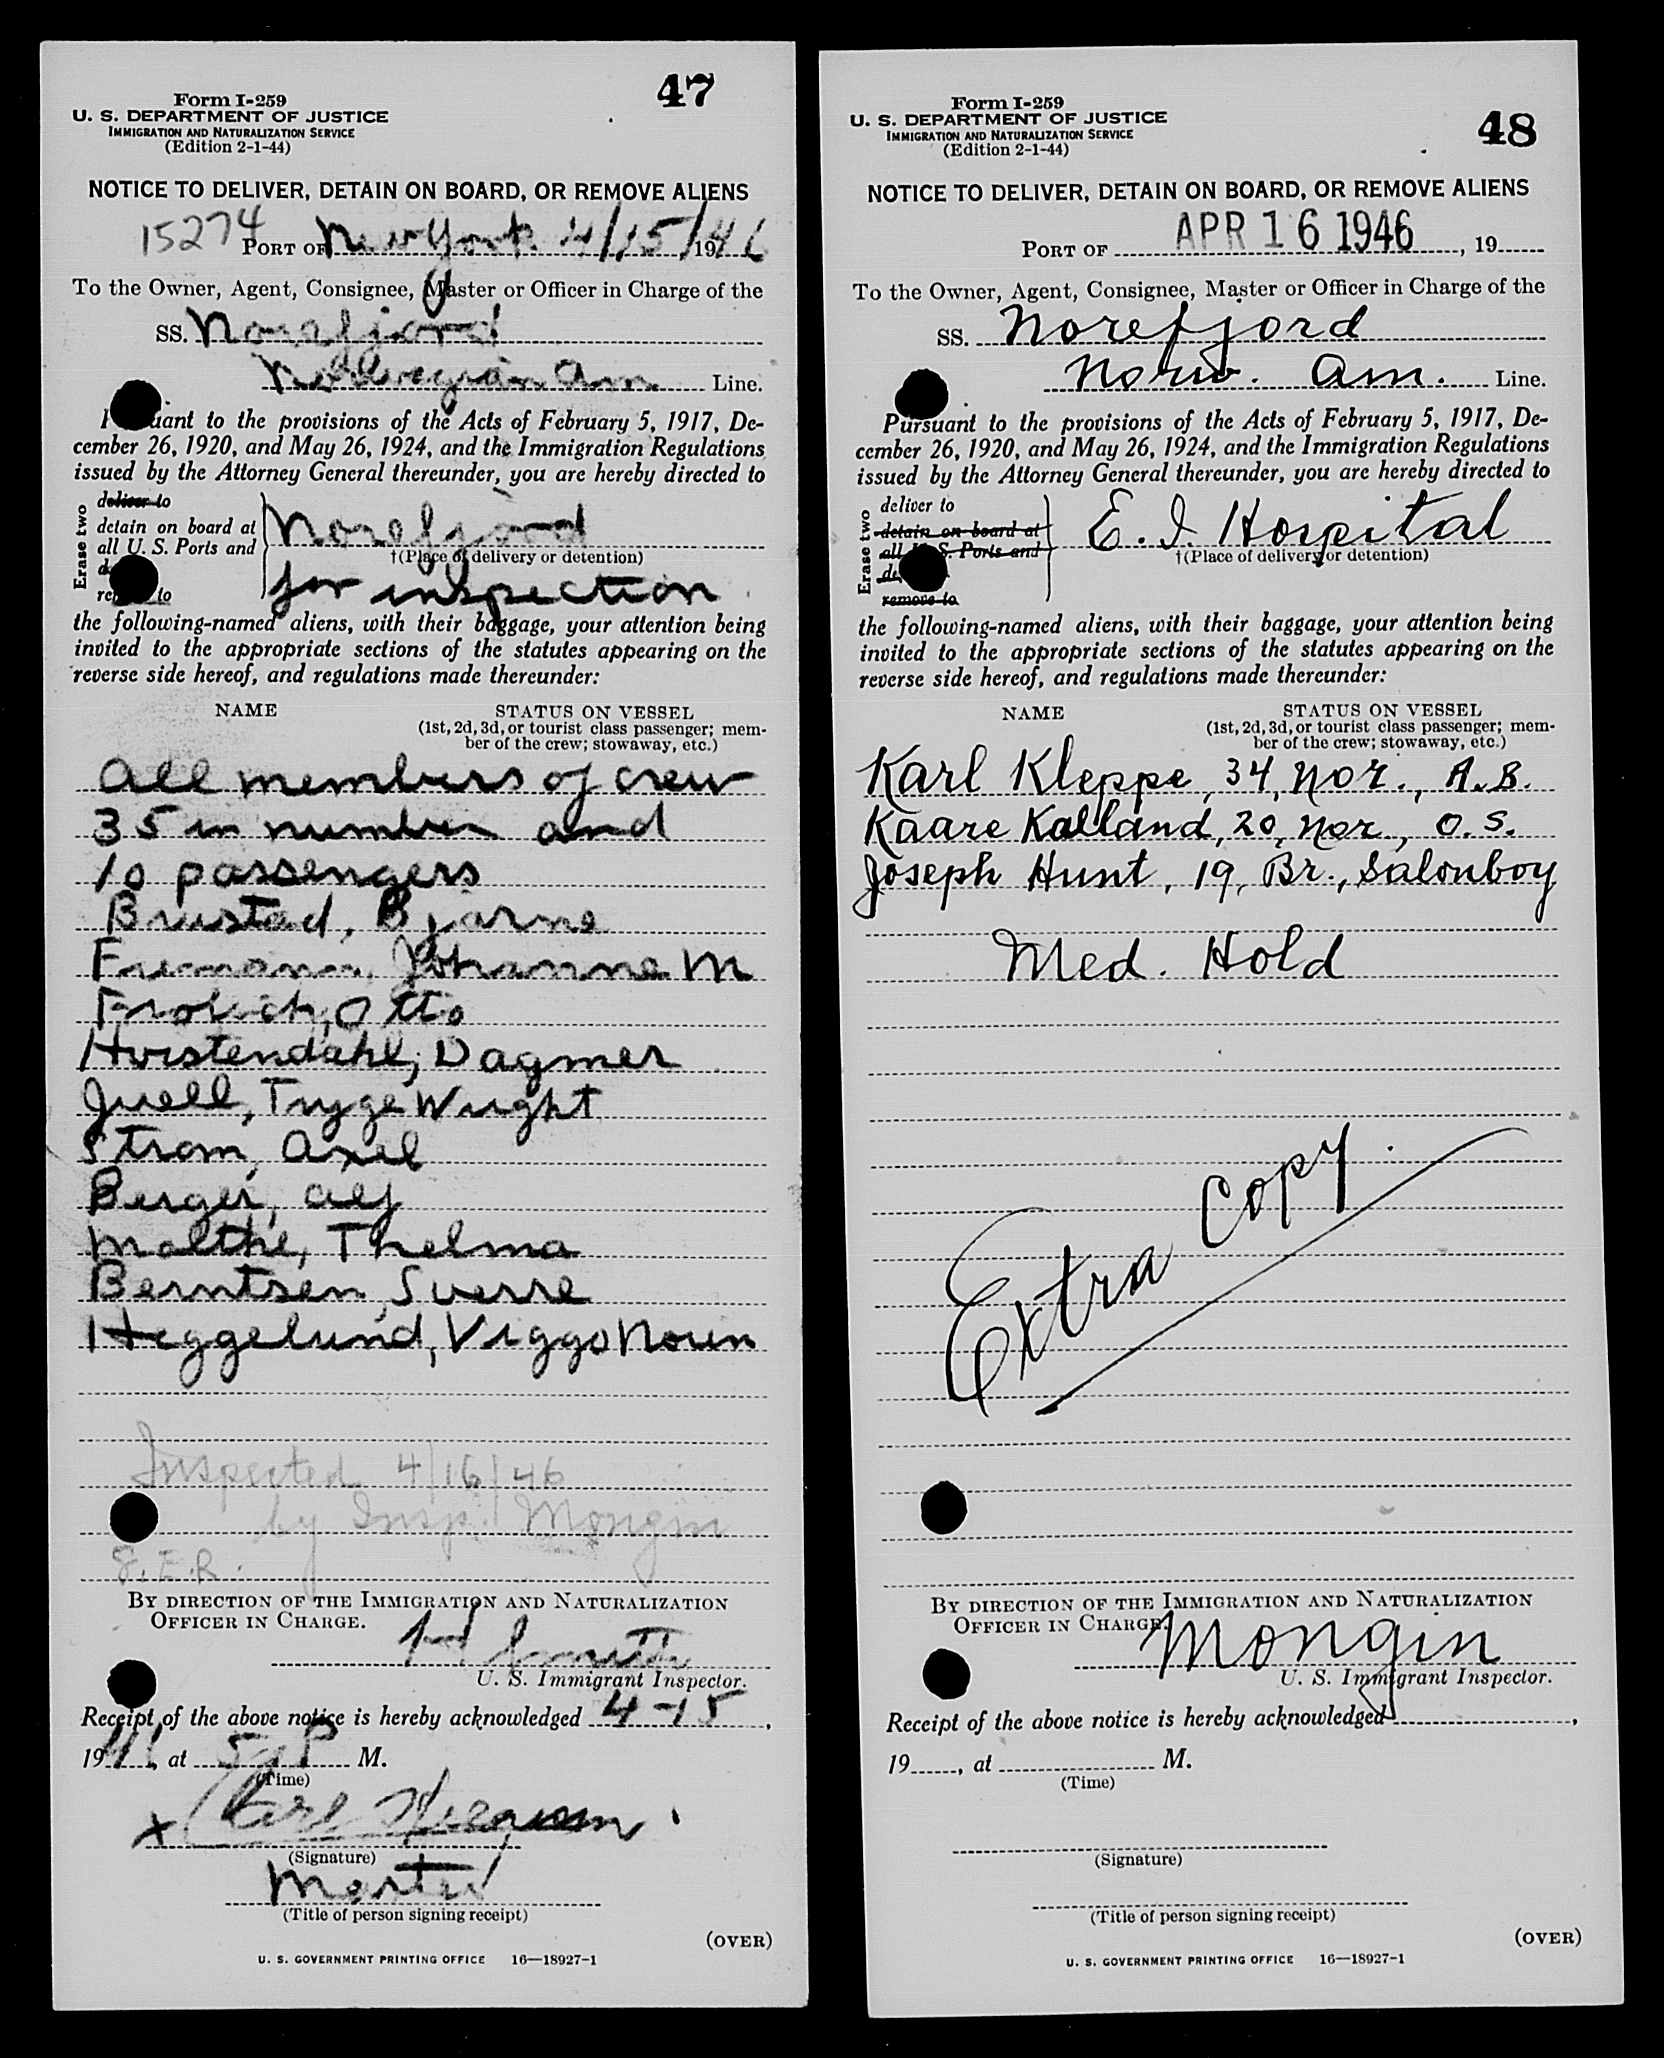 47
Form I-259
U. S. DEPARTMENT OF JUSTICE
IMMIGRATION AND NATURALIZATION SERVICE
(Edition 2-1-44)
NOTICE TO DELIVER, DETAIN ON BOARD, OR REMOVE ALIENS
15274
PORT OF New York 4/15/1946
To the Owner, Agent, Consignee, Master or Officer in Charge of the
SS. Norefjord
Norwegian Am Line.
to the provisions of the Acts of February 5, 1917, De-
cember 26, 1920, and May 26, 1924, and the Immigration Regulations
issued by the Attorney General thereunder, you are hereby directed to
Erase two
deliver to
detain on board at
all U. S. Ports and
to
Norefjord
†(Place of delivery or detention)
for inspection
the following-named aliens, with their baggage, your attention being
invited to the appropriate sections of the statutes appearing on the
reverse side hereof, and regulations made thereunder:
NAME STATUS ON VESSEL
(1st, 2d, 3d, or tourist class passenger; mem-
ber of the crew; stowaway, etc.)
All members of crew
35 in number and
10 passengers
Brustad, Bjarne
Johanne M
Frolich, Otto
Hvistendahl, Dagmer
Juell, Tryge Wright
Strom, Axel
Berger, Alf
Malthe, Thelma
Berntsen, Sverre
Heggelund, Viggo
Inspected 4/16/46
by Insp. Mongin
E.R.
BY DIRECTION OF THE IMMIGRATION AND NATURALIZATION
OFFICER IN CHARGE.
H Smith
U. S. Immigrant Inspector.
Receipt of the above notice is hereby acknowledged 4-15,
19, at 5 P M.
(Time)
x
(Signature)
Master
(Title of person signing receipt)
(OVER)
U. S. GOVERNMENT PRINTING OFFICE 16—18927-1
48
Form I-259
U. S. DEPARTMENT OF JUSTICE
IMMIGRATION AND NATURALIZATION SERVICE
(Edition 2-1-44)
NOTICE TO DELIVER, DETAIN ON BOARD, OR REMOVE ALIENS
PORT OF APR 16 1946, 19
To the Owner, Agent, Consignee, Master or Officer in Charge of the
SS. Norefjord
Norw. Am. Line.
Pursuant to the provisions of the Acts of February 5, 1917, De-
cember 26, 1920, and May 26, 1924, and the Immigration Regulations
issued by the Attorney General thereunder, you are hereby directed to
Erase two
deliver to
detain on board at
all U. S. Ports and
remove to
E. I. Hospital
†(Place of delivery or detention)
the following-named aliens, with their baggage, your attention being
invited to the appropriate sections of the statutes appearing on the
reverse side hereof, and regulations made thereunder:
NAME STATUS ON VESSEL
(1st, 2d, 3d, or tourist class passenger; mem-
ber of the crew; stowaway, etc.)
Karl Kleppe, 34, Nor., A.B.
Kaare Kalland, 20, Nor., O.S.
Joseph Hunt, 19, Br., Salonboy
Med. Hold
Extra Copy
BY DIRECTION OF THE IMMIGRATION AND NATURALIZATION
OFFICER IN CHARGE.
Mongin
U. S. Immigrant Inspector.
Receipt of the above notice is hereby acknowledged,
19, at M.
(Time)
(Signature)
(Title of person signing receipt)
(OVER)
U. S. GOVERNMENT PRINTING OFFICE 16—18927-1